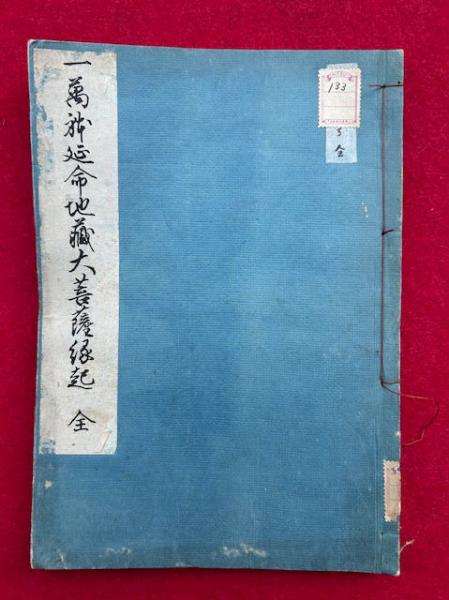 一萬躰延命地藏大菩薩縁起 全
133
全